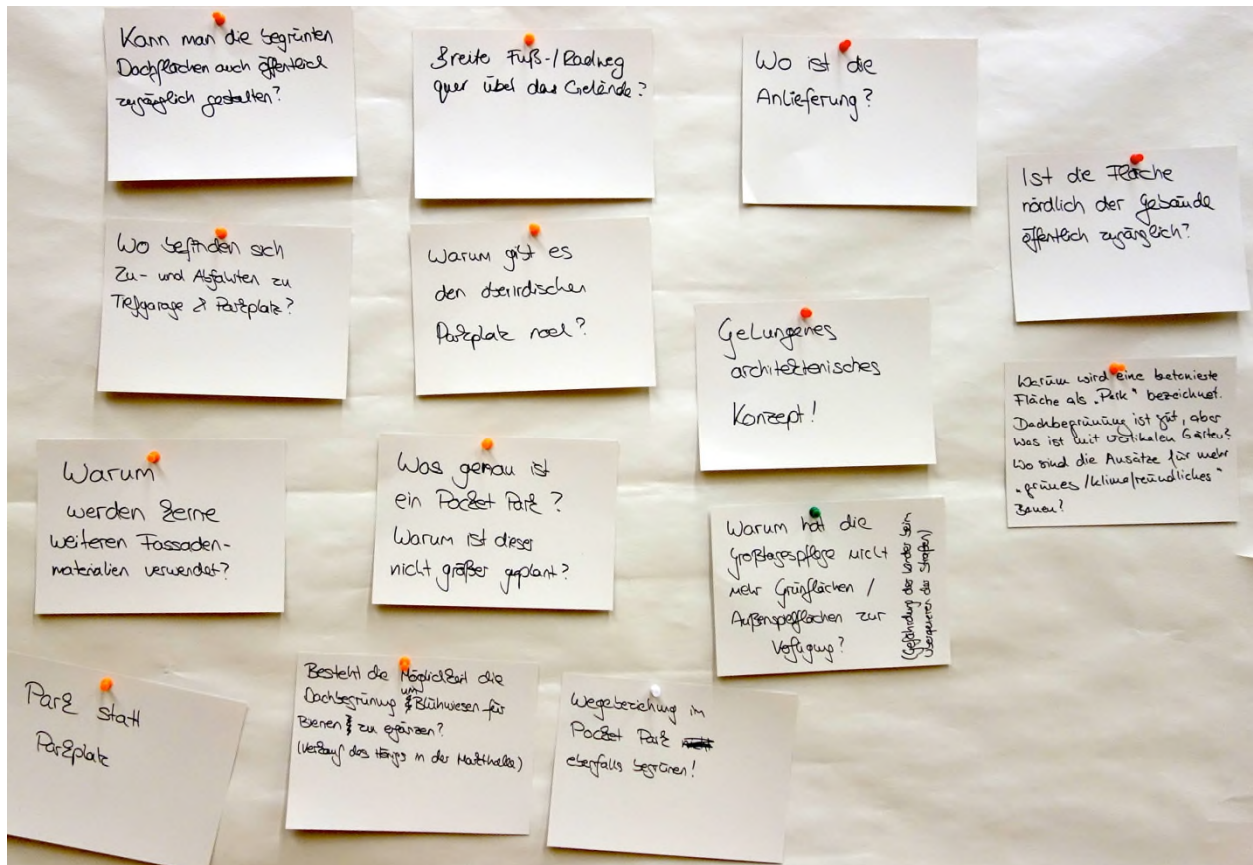 Kann man die begrünten
Dachflächen auch öffentlich
zugänglich gestalten?
Breite Fuß-/Radweg
quer über das Gelände?
Wo ist die
Anlieferung?
Ist die Fläche
nördlich der Gebäude
öffentlich zugänglich?
Wo befinden sich
Zu- und Abfahrten zu
Tiefgarage & Parkplatz?
Warum gibt es
den oberirdischen
Parkplatz noch?
Gelungenes
architektonisches
Konzept!
Warum wird eine betonierte
Fläche als „Park“ bezeichnet.
Dachbegrünung ist gut, aber
was ist mit vertikalen Gärten?
Wo sind die Ansätze für mehr
„grünes/klimafreundliches“
Bauen?
Warum
werden keine
weiteren Fassaden-
materialien verwendet?
Was genau ist
ein Pocket Park?
Warum ist dieser
nicht größer geplant?
Warum hat die
Großtagespflege nicht
mehr Grünflächen /
Außenspielflächen zur
Verfügung?
(Gefährdung der Kinder beim
Überqueren der Straßen)
Park statt
Parkplatz
Besteht die Möglichkeit die
Dachbegrünung um Blühwiesen für
Bienen zu ergänzen?
(Verkauf des Honigs in der Markthalle)
Wegebeziehung im
Pocket Park
ebenfalls begrünen!